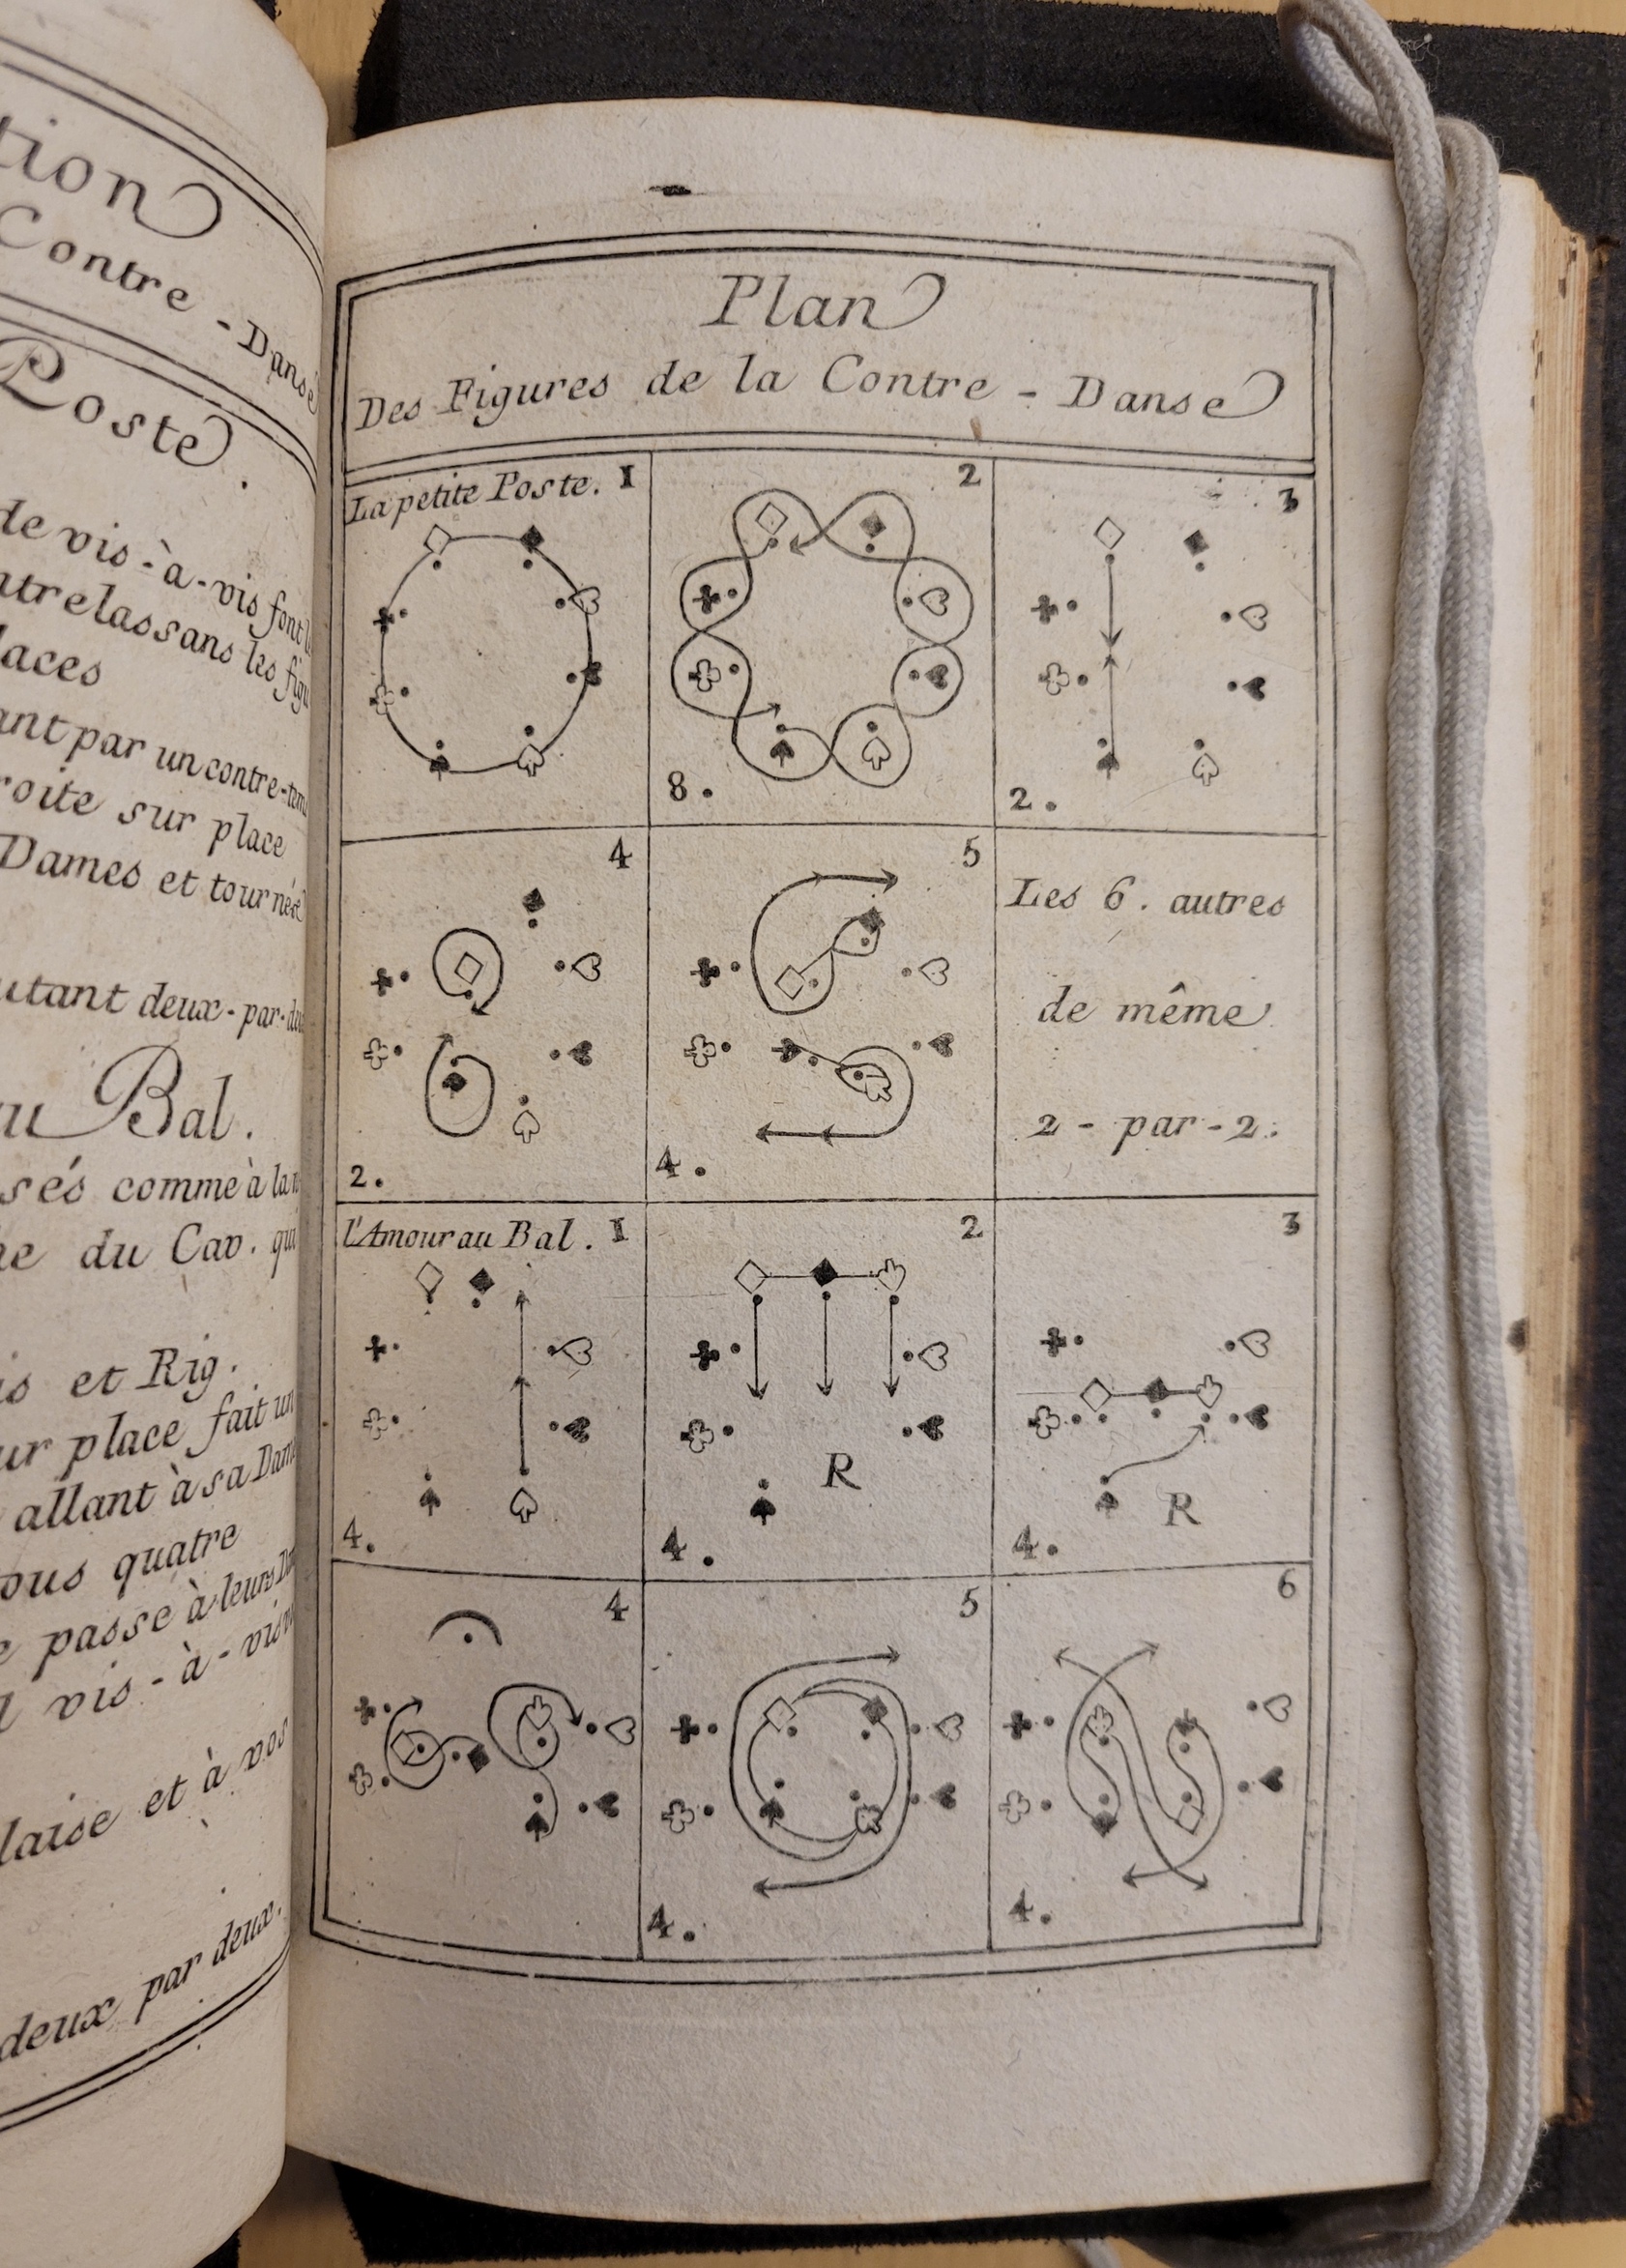 Contre - Danse
Poste.
de vis - à - vis font
sans les
laces
ant par un contre-tem
roite sur place
Dames et tournée
utant deux - par - deu
au Bal.
sés comme à la
du Cav. qui
et Rig.
ur place fait un
allant à sa Dam
ous quatre
passe à leurs
vis - à - vis
laise et à vos
deux par deux.
Plan
Des Figures de la Contre - Danse
La petite Poste. 1
2
3
8.
2.
4
5
Les 6. autres
de même
2 - par - 2.
2.
4.
L'Amour au Bal. 1
2
3
R
R
4.
4.
4.
4
5
6
4.
4.